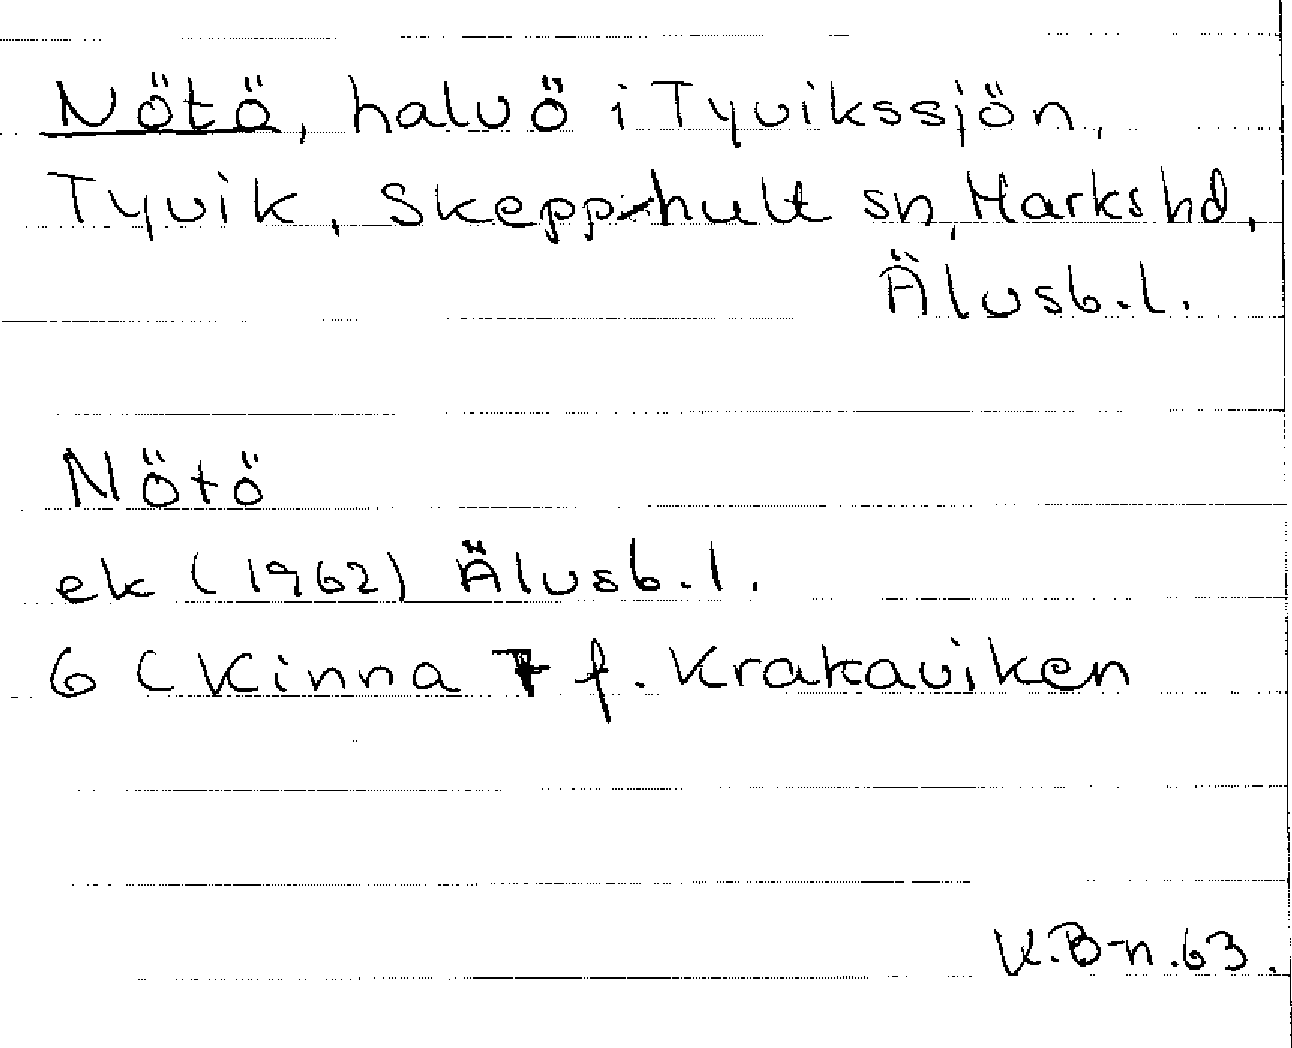 Nötö, halvö i Tyvikssjön,
Tyvik, Skepphult sn, Marks hd,
Älvsb.l.
Nötö
ek (1962) Älvsb.l.
6 ( Kinna f. Krakaviken
K.B-n.63.